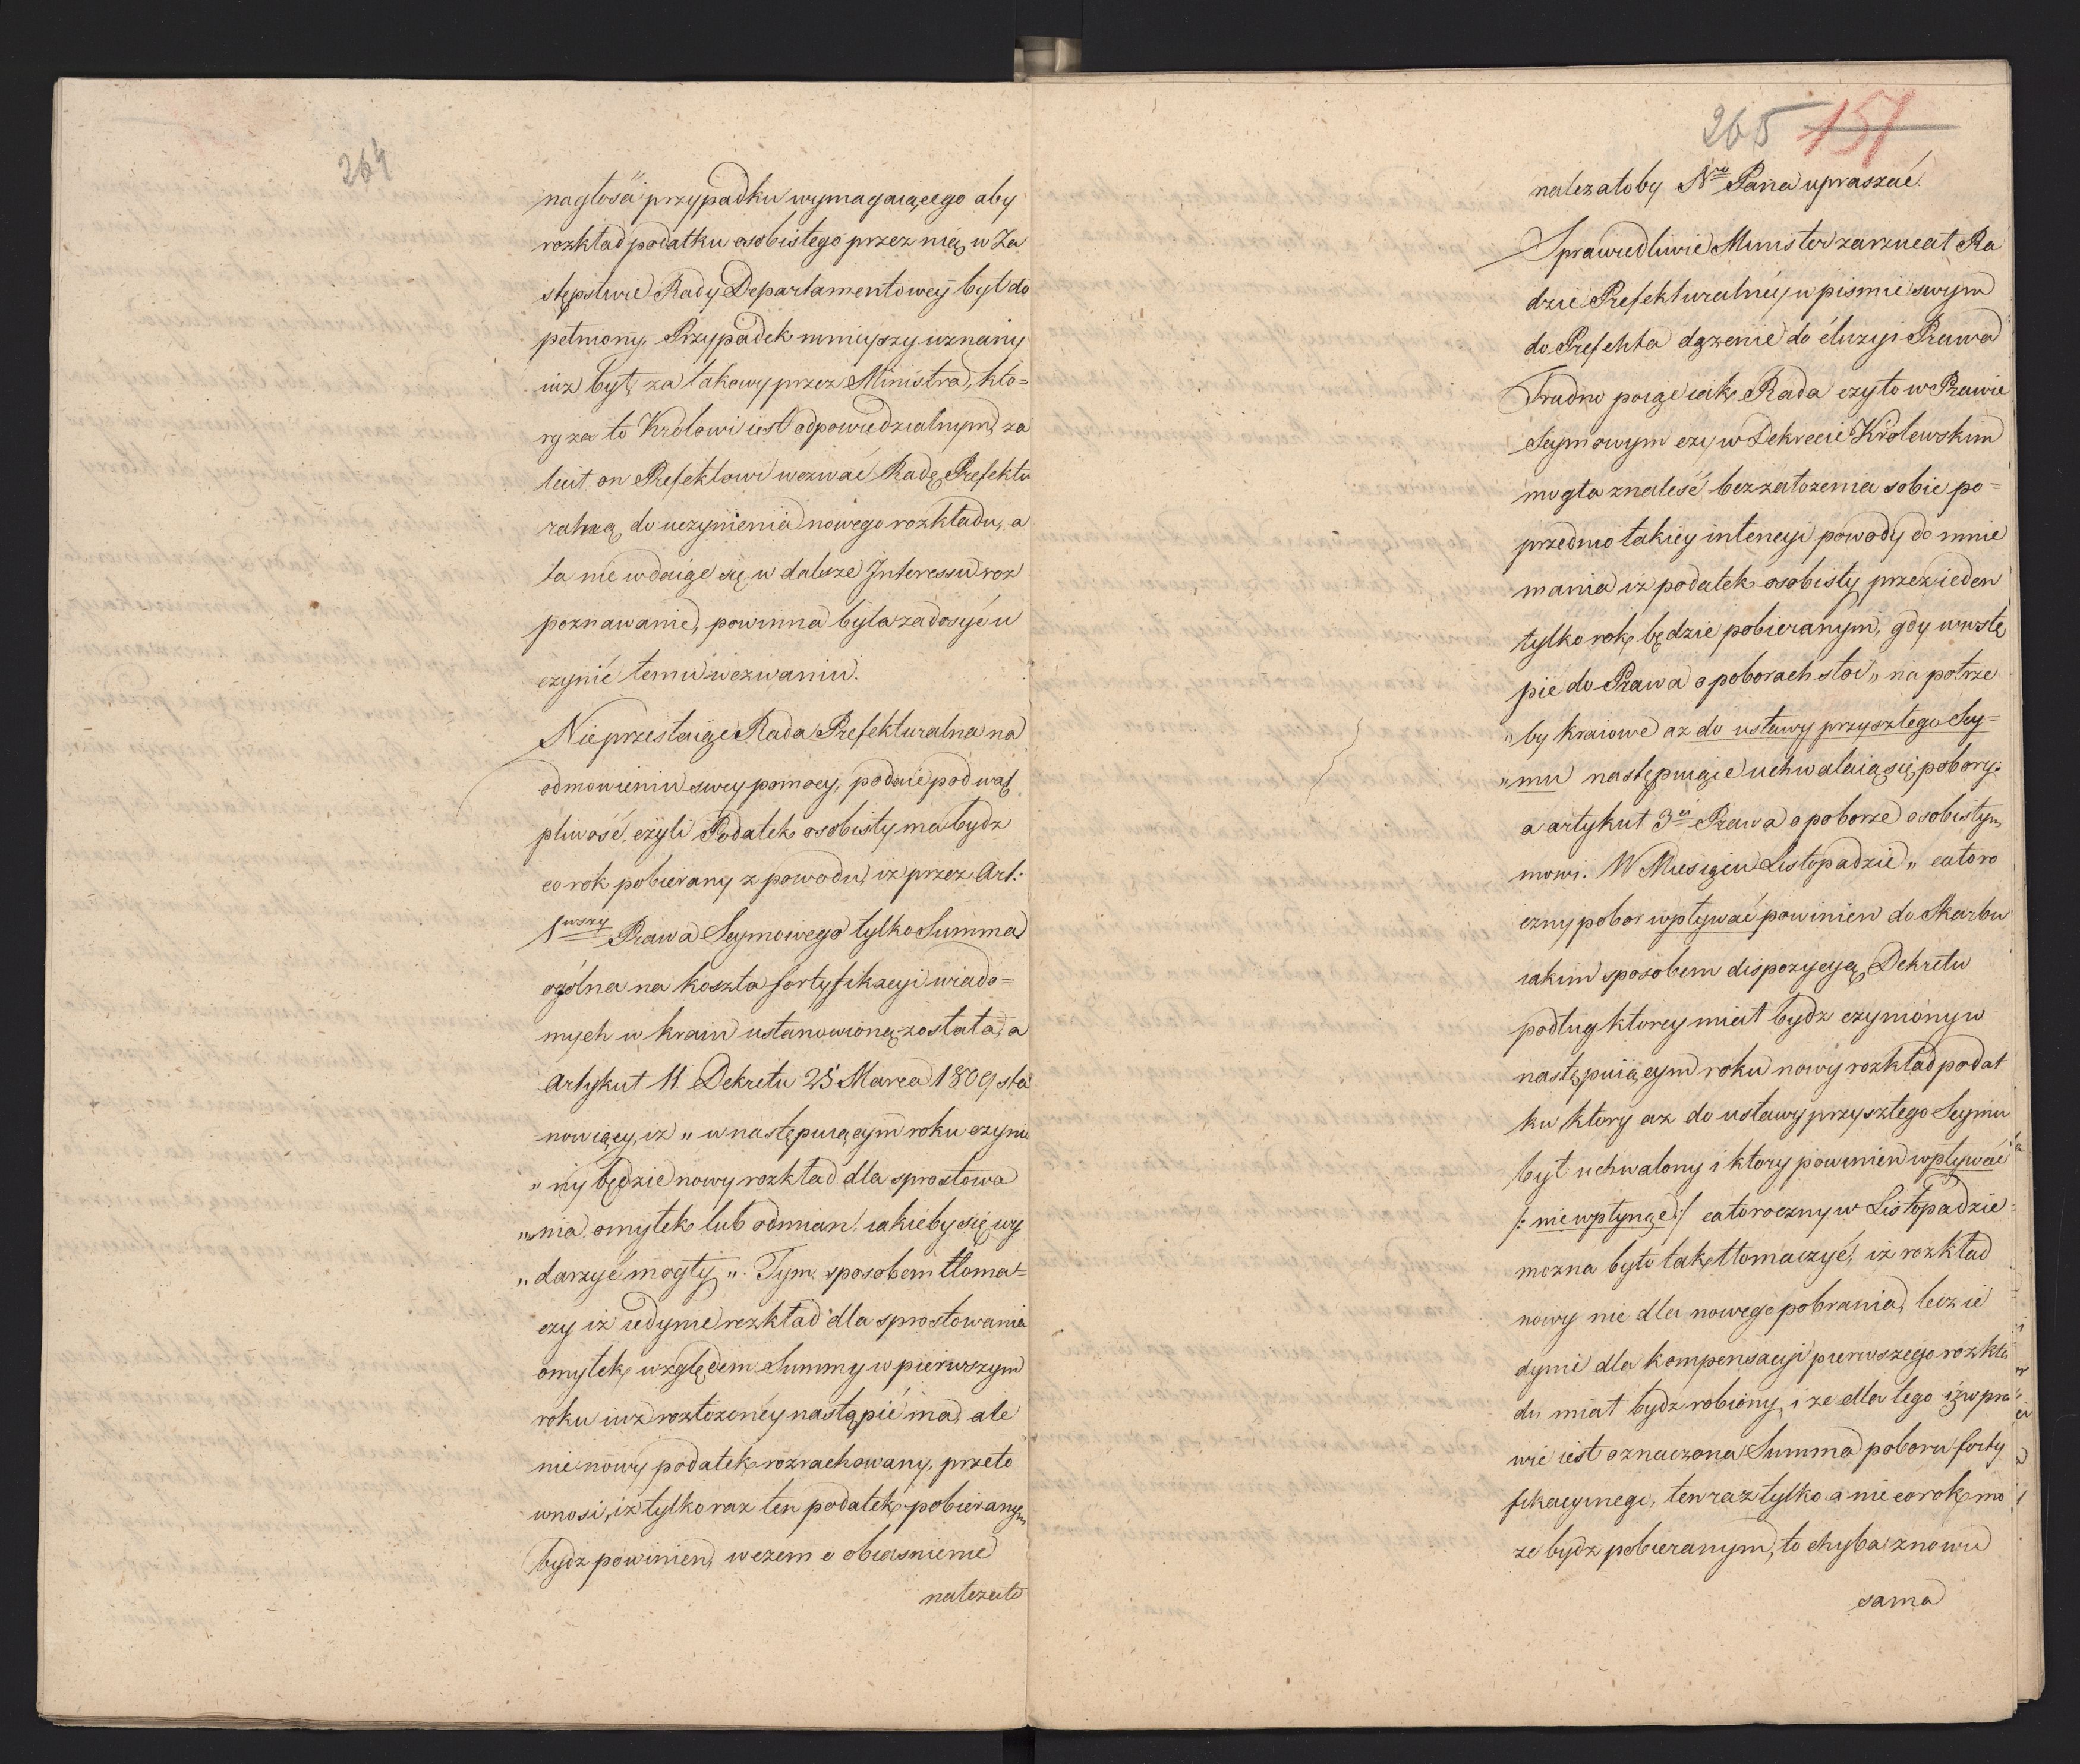 264
nagłość przypadku wymagaiącego aby
rozkład podatku osobistego przez nią w Za
stępstwie Rady Departamentowey był do
pełniony. Przypadek mnieyszy uznany
iuż był za takowy przez Ministra, kto=
ry za to Krolowi iest odpowiedzialnym, za
lecił on Prefektowi wezwać Radę Prefektu
ralną do uczynienia nowego rozkładu, a
ta nie wdaiąc się w dalsze Interessu roz
poznawanie, powinna była zadosyć u
czynić temu wezwaniu.
Nieprzestaiąc Rada Prefekturalna na
odmowieniu swey pomocy, podaie pod wąt
pliwość, czyli Podatek osobisty ma bydz
co rok pobierany z powodu, iż przez Art:
1wszy Prawa Seymowego tylko Summa
ogólna na koszta fortyfikacyi wiado=
mych w kraiu ustanowioną została, a
Artykuł 11. Dekretu 25 Marca 1809 sta
nowiący, iż „ w następuiącym roku czynio
„ ny będzie nowy rozkład dla sprostowa
„ nia omyłek lub odmian, iakieby się wy
„ darzyć mogły „. Tym sposobem tłoma=
czy iż iedynie rozkład dla sprostowania
omyłek względem Summy w pierwszym
roku iuż rozłożonéy nastąpić ma, ale
nie nowy podatek rozrachowany, przeto
wnosi, iż tylko raz ten podatek pobieranym
bydz powinien, w czem o obiaśnienie
należało
265 151
należałoby Nro Pana upraszać.
Sprawiedliwie Minister zarzucał Ra
dzie Prefekturalnéy w pismie swym
do Prefekta dążenie do éluzyi Prawa
Trudno poiąć iak Rada czy to w Prawie
Seymowym czy w Dekrecie Krolewskim
mogła znaleść bez założenia sobie po=
przednio takiey intencyi powody do mnie
mania iż podatek osobisty przez ieden
tylko rok będzie pobieranym, gdy w wstę
pie do Prawa o poborach stoi „ na potrze
„ by kraiowe aż do ustawy przyszłego Sey=
„ mu następuiące uchwalaią się pobory:
a artykuł 3ci Prawa o poborze osobistym
mowi. W Miesiącu Listopadzie „ całoro
czny pobor wpływać powinien do Skarbu
iakim sposobem dispozycyą Dekretu
podług ktorey miał bydz czyniony w
następuiącym roku nowy rozkład podat
ku ktory aż do ustawy przyszłego Seymu
był uchwalony i ktory powinien wpływać
/: nie wpłynąć :/ całoroczny w Listopadzie
można było tak tłomaczyć, iż rozkład
nowy nie dla nowego pobrania, lecz ie
dynie dla kompensacyi pierwszego rozkła
du miał bydz robiony, i że dla tego iż w pra
wie iest oznaczona Summa poboru forty
fikacyinego, ten raz tylko a nie co rok mo
że bydz pobieranym, to chyba znowu
sama